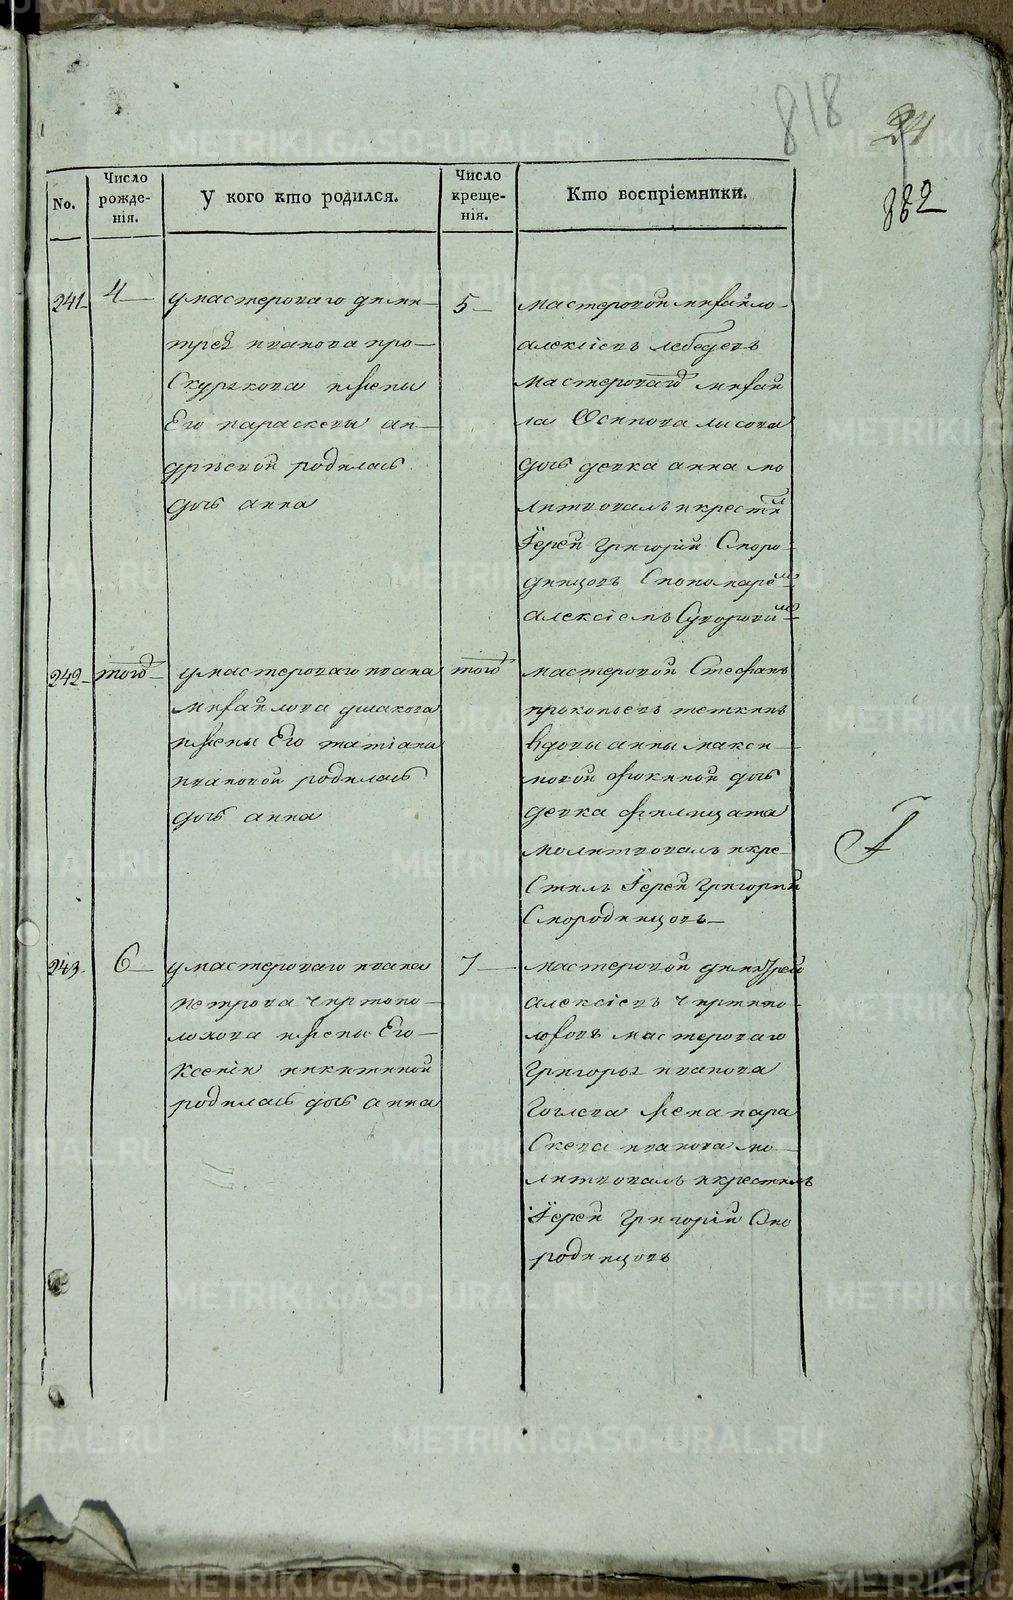 818
24
882
No.
Число рожде-
нія.
У кого кто родился.
Число креще-
нія.
Кто воспріемники.
241
4
умастероваго дими-
трея иванова про-
Скурякова ижены
Его параскевы ан-
дреевой родилась
дочь анна
5
мастеровой михайло
алексіевъ лебедевъ
мастероваго михай
ла Осипова лисова
дочь девка анна мо
литвовалъ икрестил
Іерей григорій Сморо-
динцовъ Спономаре м
алексіемъ Суворовы м
242
того
умастероваго ивана
михайлова
ижены Его татіана
ивановой родилась
дочь анна
того
мастеровой Стефанъ
прокопьевъ теткинъ
вдовы анны макси-
мовой дочь
девка филицата
молитвовалъ икре-
Стилъ Іерей григорий
Смородинцовъ
243
6
умастероваго ивана
петрова чертопо-
лохова ижены Его
Ксеніи никитиной
родилась дочь анна
7
мастеровой димитрей
алексіевъ чертопо-
лоховъ мастероваго
григорья иванова
Гоглева жена пара
Скева иванова мо-
литвовалъ икрестилъ
Іерей григорій Смо
родинцовъ
METRIKI.GASO-URAL.RU